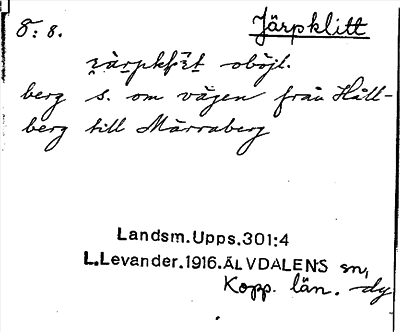 8:8. Järpklitt
oböjl.
berg s. om vägen från Håll-
berg till Märraberg
Landsm.Upps.301:4
L.Levander.1916.ÄLVDALENS sn,
Kopp. län. dy